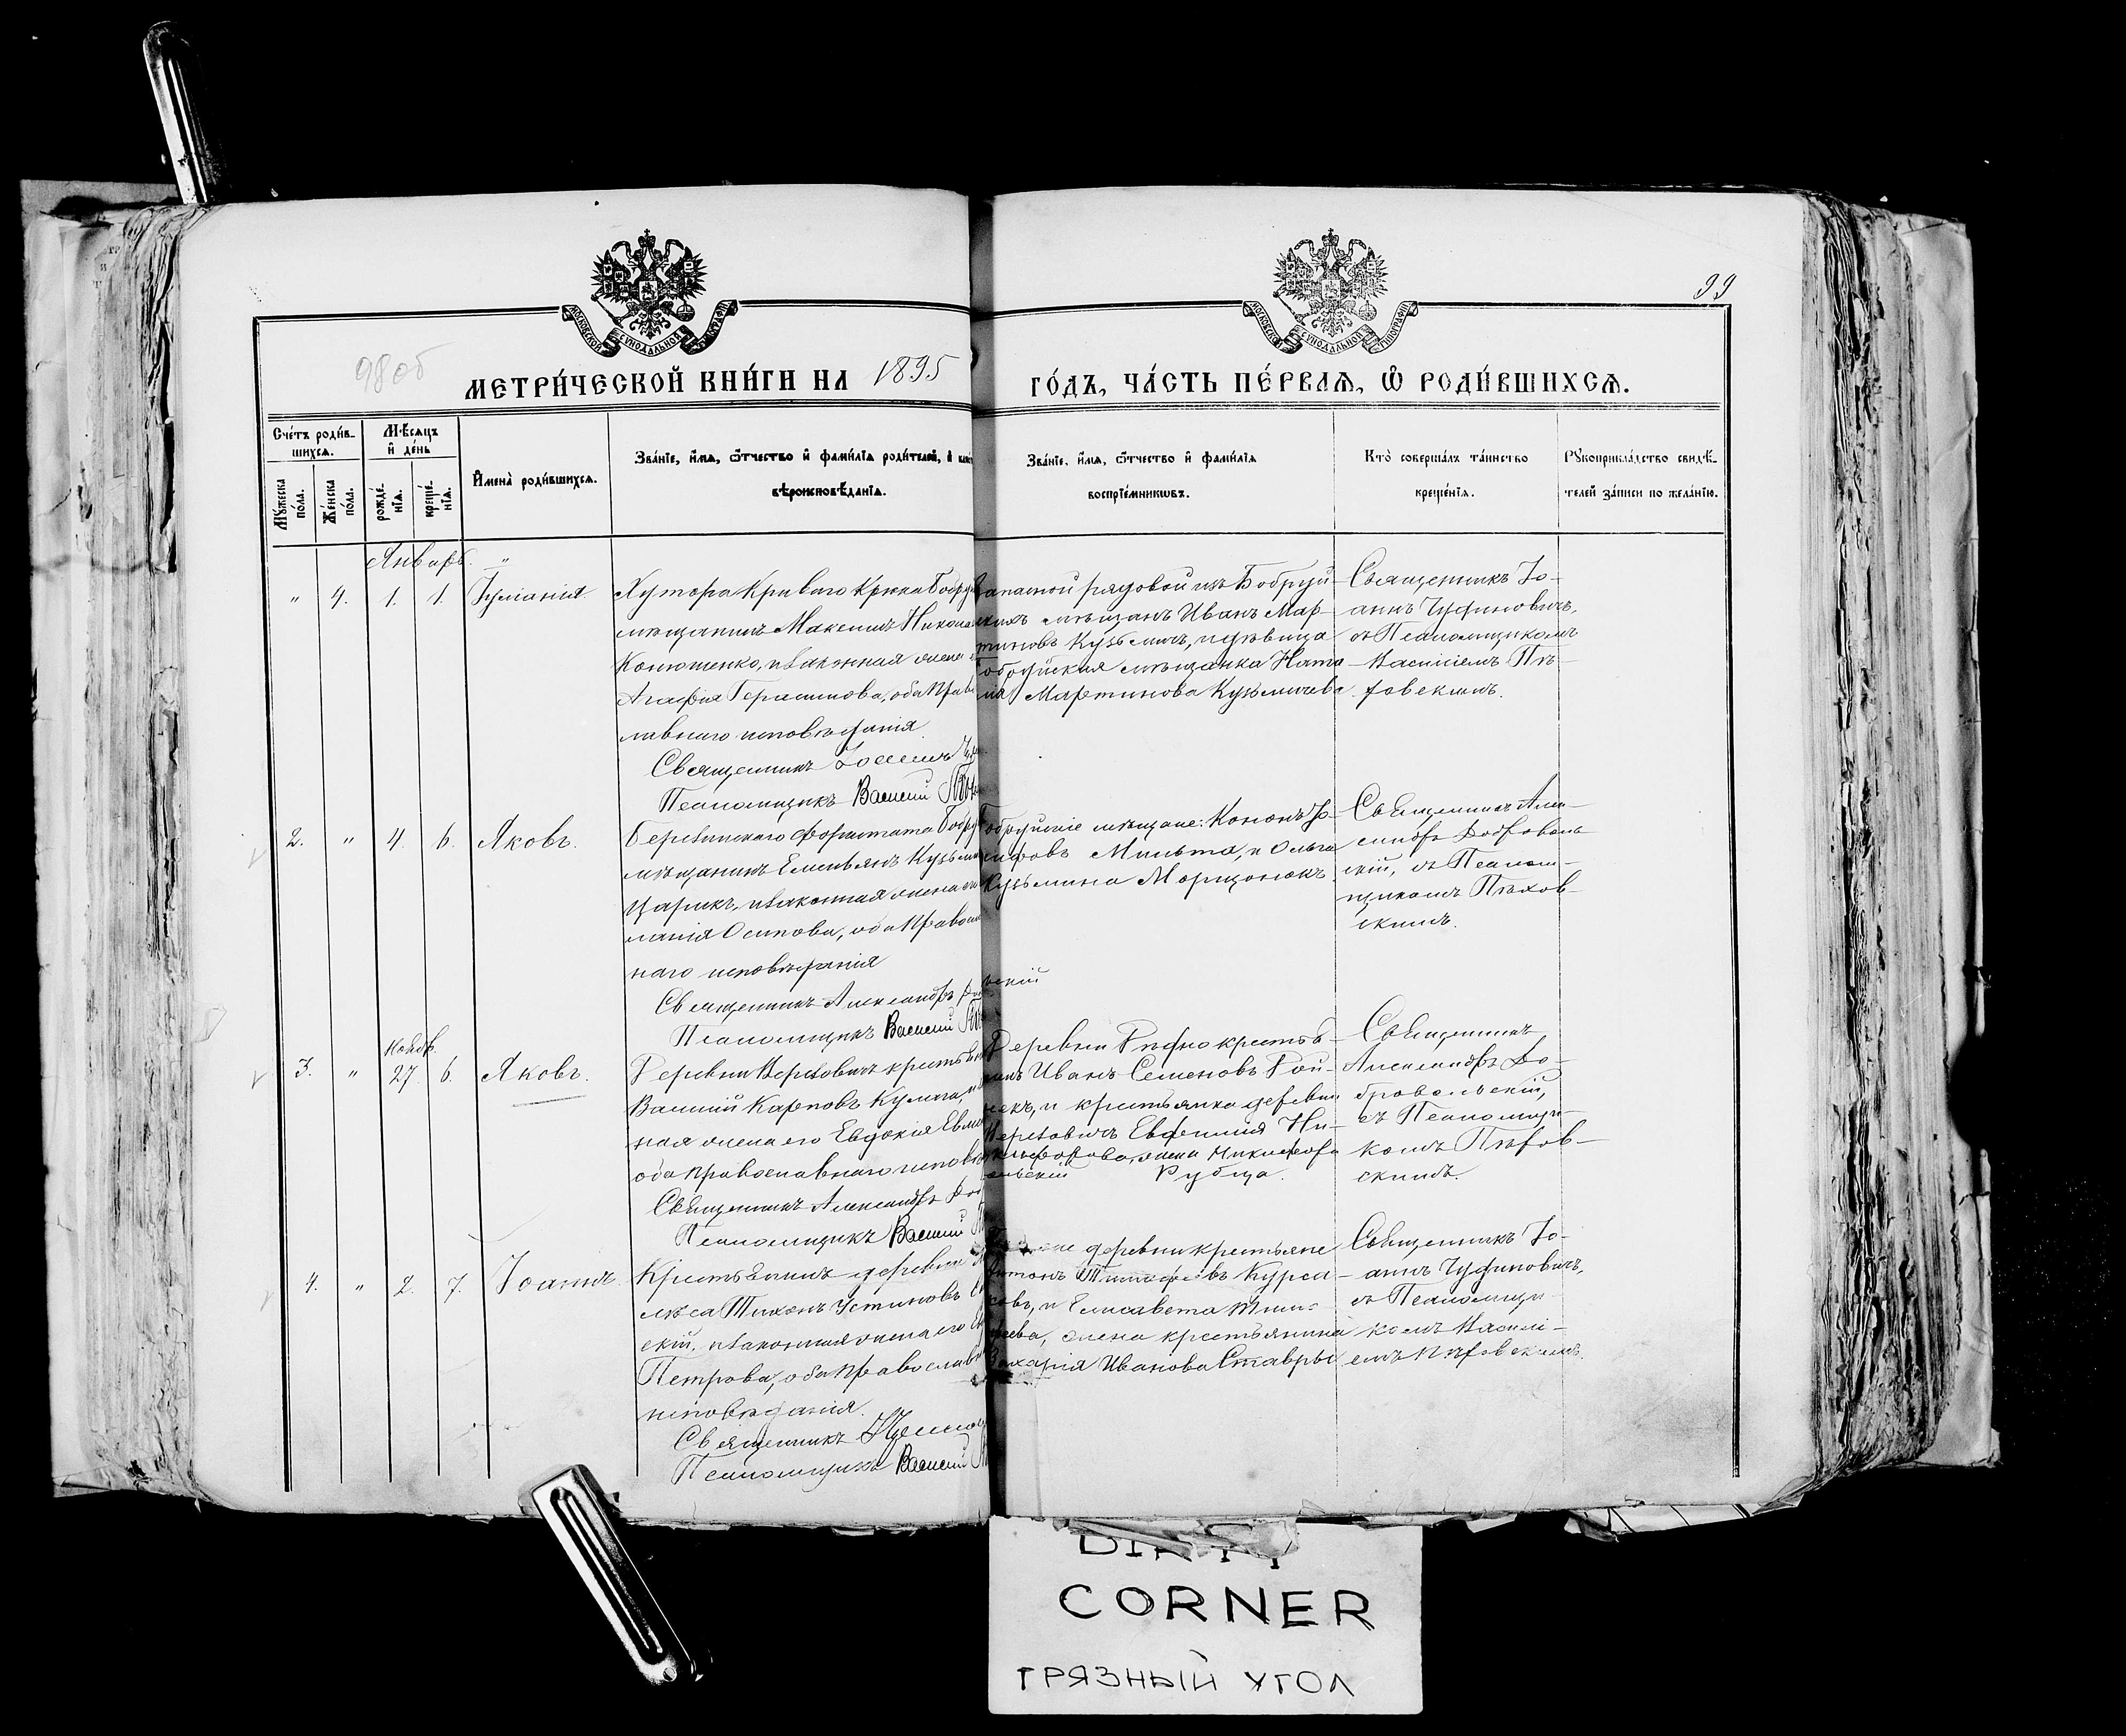 99
98 об
МЕТРИ́ЧЕСКОЙ КНИ́ГИ НА 1895 ГО́ДЪ, ЧА́СТЬ ПЕ́РВАѦ, Ѽ РОДИ́ВШИХСѦ.
Сче́тъ роди́в-
шихсѧ.
Мꙋ́жеска по́ла.
Же́нска по́ла.
Мѣ́сѧцъ
и҆ де́нь
рожде́-
нїѧ.
креще́-
нїѧ.
И҆мена̀ роди́вшихсѧ.
Зва́нїе, и҆́мѧ, ѻ҆́тчество и҆ фами́лїѧ роди́телей, и҆
вѣроисповѣ́данїѧ.
Зва́нїе, и҆́мѧ, ѻ҆́тчество и҆ фами́лїѧ
воспрїе́мникѡвъ.
Кто̀ соверша́лъ та́инство
креще́нїѧ.
Рꙋкоприкла́дство свидѣ́-
телей за́писи по жела́нїю.
Январь. "
" 4. 1. 1. Іуліанія.
Хутора Криваго Крюка Бобруй
мѣщанинъ Максимъ Никола
Конюшенко, и законная жена
Агафія Герасимова, оба право
лавнаго исповѣданія
Священникъ Іоаннъ
Псаломщикъ Василій
Запасной рядовой изъ Бобруй-
скихъ мѣщанъ Иванъ Мар-
тиновъ Кузьмичъ, и дѣвица
Бобруйская мѣщанка Ната-
лія Мартинова Кузьмичева.
Священникъ Іо-
аннъ Чудиновичъ,
съ Псаломщикомъ
Василіемъ Пѣ-
ховскимъ.
2. " 4. 6. Яковъ.
Березинскаго форштата Бобруй
мѣщанинъ Емельянъ Кузьмин
Царикъ, и законная жена его
манія Осипова, оба православ
наго исповѣданія
Священникъ Александръ вскій
Псаломщикъ Василій
Бобруйскіе мѣщане: Кононъ Іо-
сифовъ Мильто, и Ольга
Кузьмина Морцонокъ.
Священникъ Алек-
сандръ Доброволь-
скій, съ Псалом-
щикомъ Пѣхов-
скимъ.
Ноябр.
3. " 27. 6. Яковъ.
Деревни Верховичъ крестьян
Василій Карповъ Кулага, и
ная жена его Евдокія
оба православнаго исповѣ
Священникъ Александръ Доб
Псаломщикъ Василій
Деревни крестья-
нинъ Иванъ Семеновъ
и крестьянка деревни
Евфимія Ни-
кифорова, жена Никифора
Рубца.
ольскій
Священникъ
Александръ До-
бровольскій,
съ Псаломщи-
комъ Пѣхов-
скимъ.
4. " 2. 7. Іоаннъ.
Крестьянинъ деревни
лѣса Тихонъ Устиновъ
скій, и законная жена его
Петрова, оба православн
исповѣданія.
Священникъ
Псаломщикъ Василій
деревни крестьяне
Антонъ Тимофеевъ Курса-
ковъ, и Елисавета Тимо-
феева, жена крестьянина
Захарія Иванова Ставры
Священникъ Іо-
аннъ Чудиновичъ,
съ Псаломщи-
комъ Васили-
емъ Пѣховскимъ.
CORNER
ГРЯЗНЫЙ УГОЛ